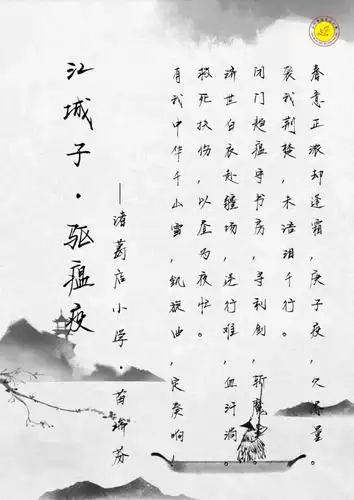 江城子·驱瘟疫
——诸葛店小学·苗瑜芬
春意正浓却逢霜，庚子夜，久思量。
裂我荆楚，未语泪千行。
闭门趋瘟守书房，寻利剑，斩魔王。
济世白衣赴疆场，逆行难，血汗淌。
救死扶伤，以昼为夜忙。
有我中华千山雪，凯旋曲，定奏响！